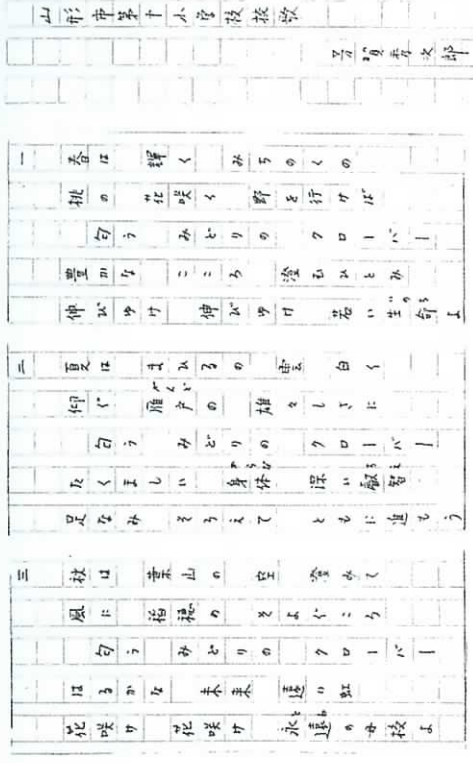 山形市第十小学校校歌
春は 輝く みちのくの
桃の 花咲く 野を行けば
匂う みどりの クローバー
豊かな こころ 澄むひとみ
伸びゆけ 伸びゆけ 若い生命よ
二
夏は まひるの 雲 白く
仰ぐ 雁戸の 雄々しさに
匂う みどりの クローバー
たくましい 身体 深い叡智
足なみ そろえて ともに進もう
三
秋は 葉山の 空 澄みて
風に 稲穂の そよぐころ
匂う みどりの クローバー
はるかな 未来 遠い虹
花咲け 花咲け 永遠の母校よ